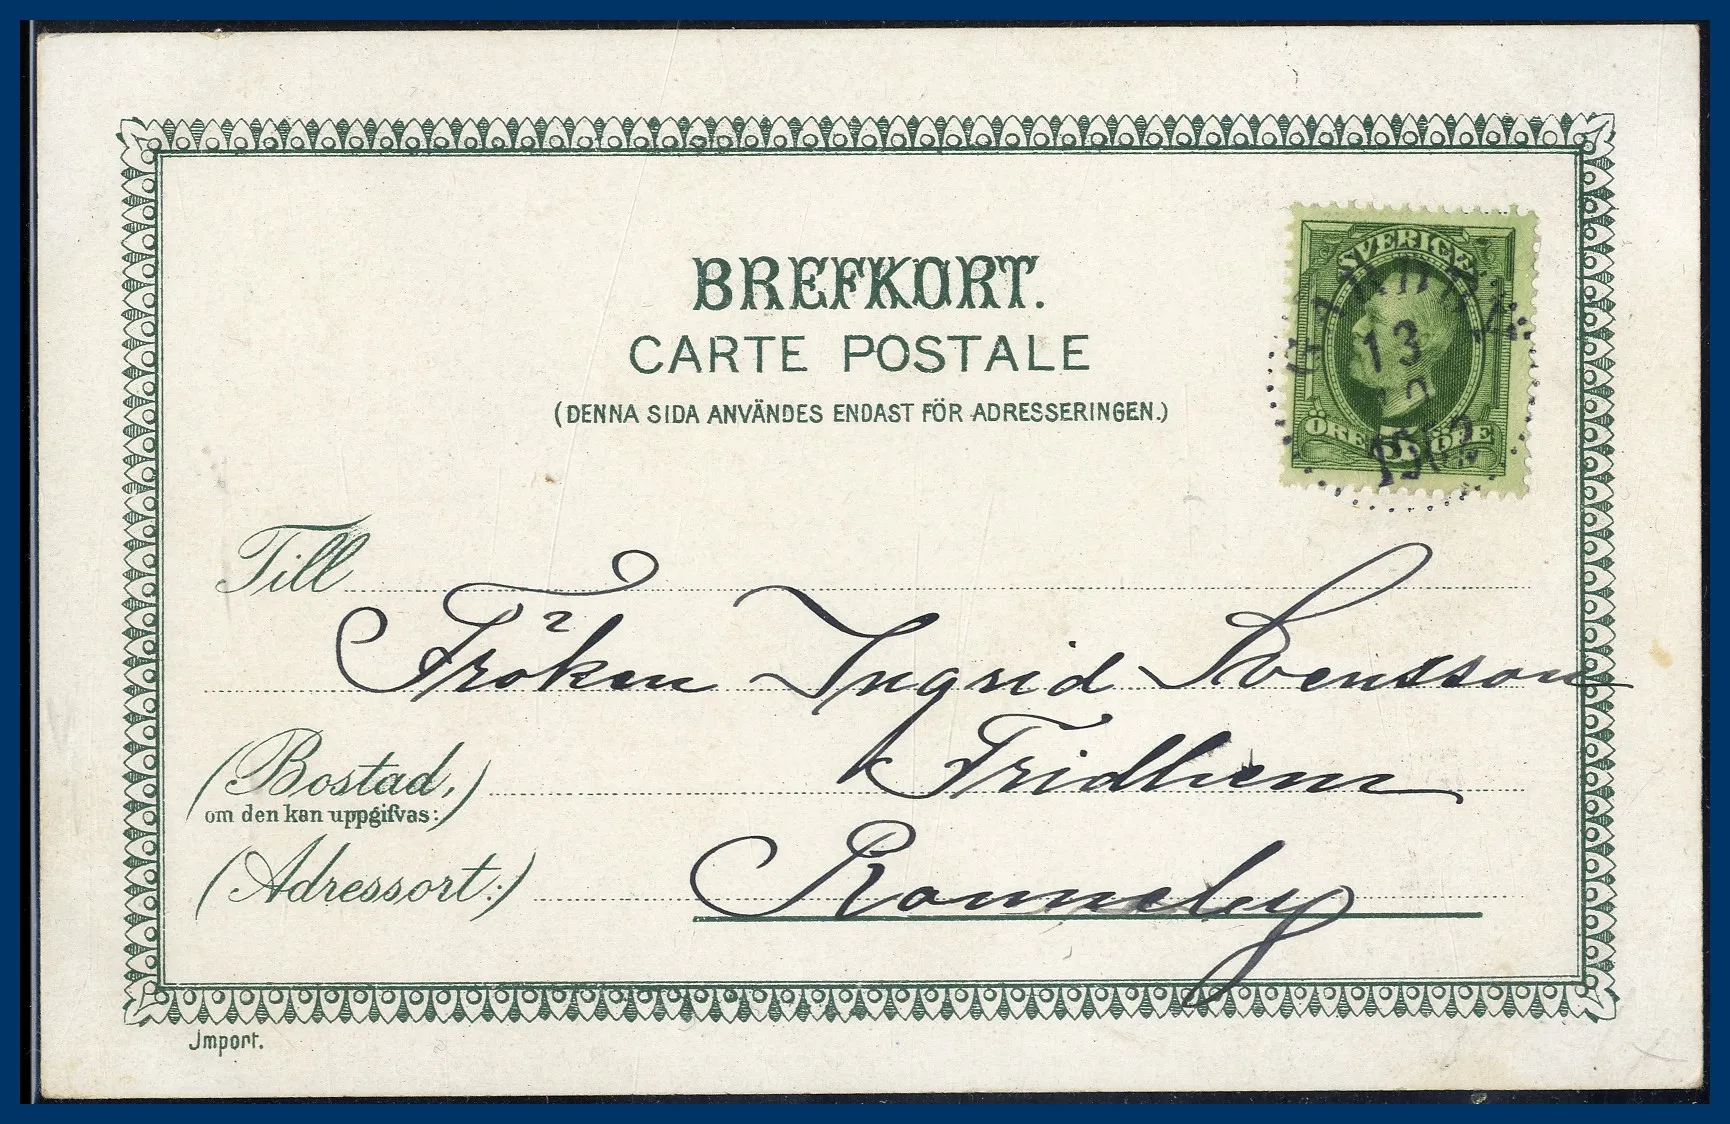 BREFKORT.
CARTE POSTALE
(DENNA SIDA ANVÄNDES ENDAST FÖR ADRESSERINGEN.)
SVERIGE
13
1902
ÖRE 5 ÖRE
Till
Fröken Ingrid Svensson
(Bostad,)
Fridhem
om den kan uppgifvas:
(Adressort:)
Ronneby
Import.